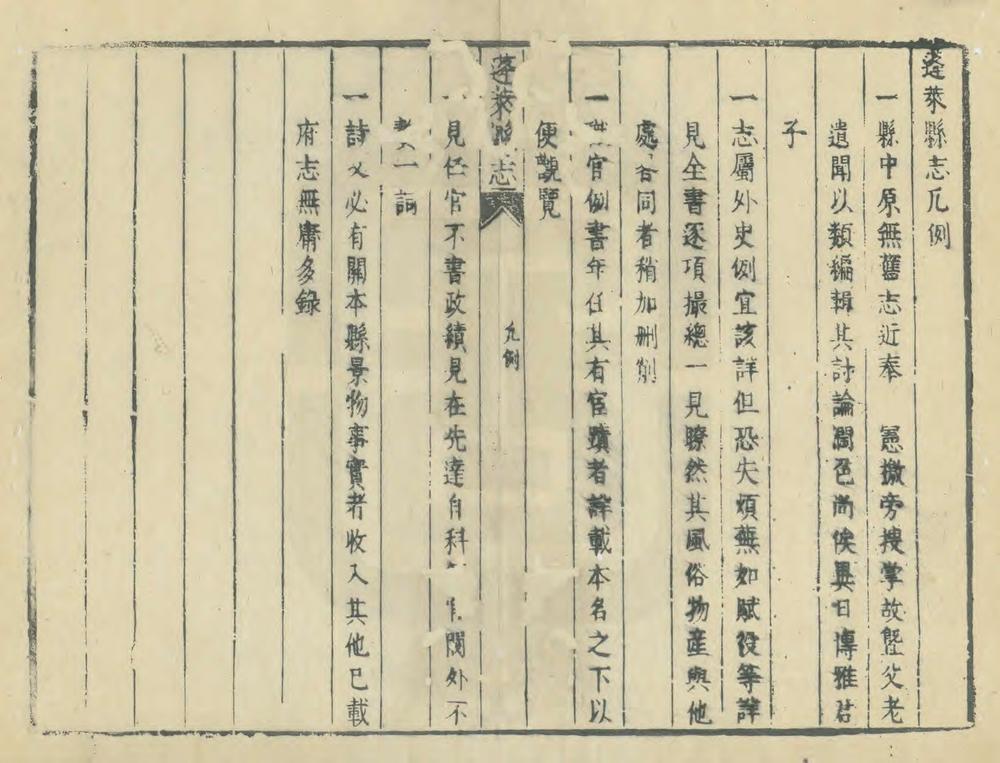 蓬萊縣志凡例
一縣中原無舊志近奉　憲檄旁搜掌故曁父老
遺聞以類編輯其討論潤色尚俟異日博雅君
子
一志屬外史例宜該詳但恐失煩蕪如賦役等詳
見全書逐項撮總一見瞭然其風俗物產與他
處各同者稍加刪削
一官例書年任其有宦蹟者詳載本名之下以
便觀覽
蓬萊縣志
凡例
一見任官不書政績見在先達自科閥外不
一詞
一詩文必有關本縣景物事實者收入其他已載
府志無庸多錄